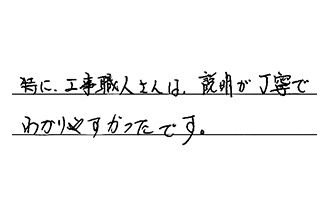 特に、工事職人さんは、説明が丁寧で
わかりやすかったです。